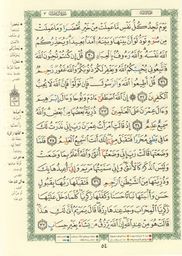 يَوْمَ تَجِدُ كُلُّ نَفْسٍ مَّا عَمِلَتْ مِنْ خَيْرٍ مُّحْضَرًا وَمَا عَمِلَتْ
مِن سُوٓءٍ تَوَدُّ لَوْ أَنَّ بَيْنَهَا وَبَيْنَهُۥٓ أَمَدًۢا بَعِيدًا وَيُحَذِّرُكُمُ
ٱللَّهُ نَفْسَهُۥ وَٱللَّهُ رَءُوفٌۢ بِٱلْعِبَادِ ٣٠ قُلْ إِن كُنتُمْ تُحِبُّونَ ٱللَّهَ
فَٱتَّبِعُونِى يُحْبِبْكُمُ ٱللَّهُ وَيَغْفِرْ لَكُمْ ذُنُوبَكُمْ وَٱللَّهُ غَفُورٌ رَّحِيمٌ
٣١ قُلْ أَطِيعُوا۟ ٱللَّهَ وَٱلرَّسُولَ فَإِن تَوَلَّوْا۟ فَإِنَّ ٱللَّهَ لَا يُحِبُّ
ٱلْكَٰفِرِينَ ٣٢ إِنَّ ٱللَّهَ ٱصْطَفَىٰٓ ءَادَمَ وَنُوحًا وَءَالَ إِبْرَٰهِيمَ
وَءَالَ عِمْرَٰنَ عَلَى ٱلْعَٰلَمِينَ ٣٣ ذُرِّيَّةًۢ بَعْضُهَا مِنۢ بَعْضٍ وَٱللَّهُ
سَمِيعٌ عَلِيمٌ ٣٤ إِذْ قَالَتِ ٱمْرَأَتُ عِمْرَٰنَ رَبِّ إِنِّى نَذَرْتُ لَكَ
مَا فِى بَطْنِى مُحَرَّرًا فَتَقَبَّلْ مِنِّىٓ إِنَّكَ أَنتَ ٱلسَّمِيعُ ٱلْعَلِيمُ ٣٥ فَلَمَّا
وَضَعَتْهَا قَالَتْ رَبِّ إِنِّى وَضَعْتُهَآ أُنثَىٰ وَٱللَّهُ أَعْلَمُ بِمَا وَضَعَتْ
وَلَيْسَ ٱلذَّكَرُ كَٱلْأُنثَىٰ وَإِنِّى سَمَّيْتُهَا مَرْيَمَ وَإِنِّىٓ أُعِيذُهَا بِكَ
وَذُرِّيَّتَهَا مِنَ ٱلشَّيْطَٰنِ ٱلرَّجِيمِ ٣٦ فَتَقَبَّلَهَا رَبُّهَا بِقَبُولٍ
حَسَنٍ وَأَنۢبَتَهَا نَبَاتًا حَسَنًا وَكَفَّلَهَا زَكَرِيَّا كُلَّمَا دَخَلَ عَلَيْهَا
زَكَرِيَّا ٱلْمِحْرَابَ وَجَدَ عِندَهَا رِزْقًا قَالَ يَٰمَرْيَمُ أَنَّىٰ لَكِ هَٰذَا
قَالَتْ هُوَ مِنْ عِندِ ٱللَّهِ إِنَّ ٱللَّهَ يَرْزُقُ مَن يَشَآءُ بِغَيْرِ حِسَابٍ ٣٧
٥٤